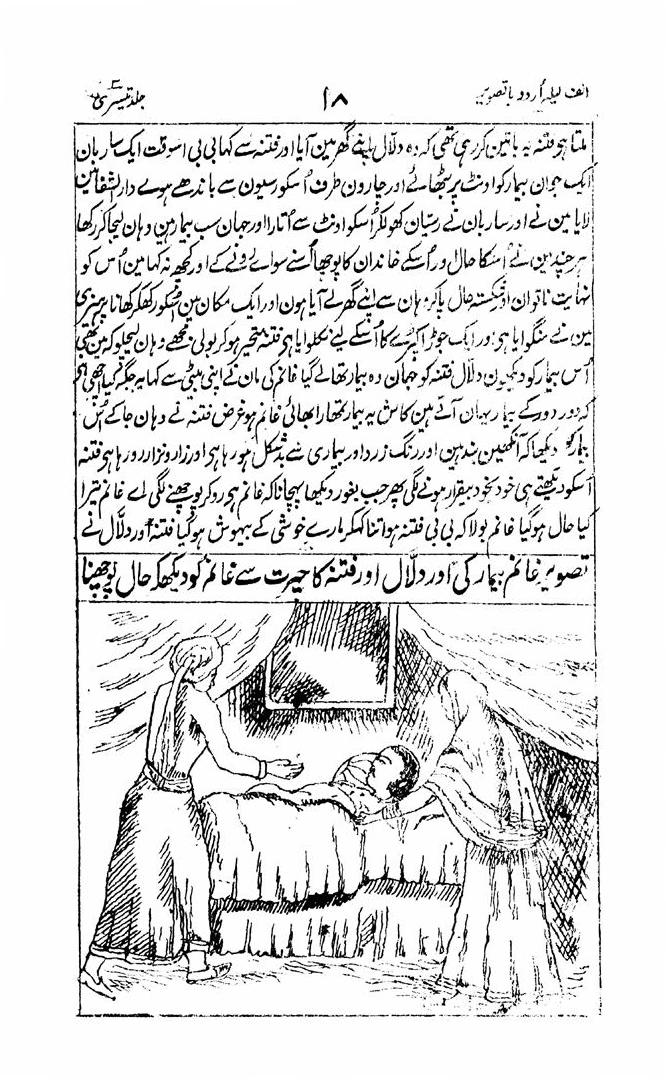 الف لیلہ اُردو با تصویر
۱۸
جلد تیسری
ملتا ہو فتنہ یہ باتین کر رہی تھی کہ وہ دلّال اپنے گھر مین آیا اور فتنہ سے کہا بی بی اسوقت ایک ساربان
ایک جوان بیمار کو اونٹ پر بٹھائے اور چارون طرف اُسکو رسیون سے باندھے ہوے دار الشفا مین
لایا مین نے اور ساربان نے رسّیان کھولکر اُسکو اونٹ سے اُتارا اور جہان سب بیمار مین وہان لیجا کر رکھا
ہر چند مین نے اُسکا حال اور اُسکے خاندان کا پوچھا اُسنے سواے رونے کے اور کچھ نہ کہا مین اُس کو
نہایت ناتوان اور شکستہ حال پاکر وہان سے اپنے گھر لے آیا ہون اور ایک مکان مین اُسکو رکھکر کھانا پرہیزی
مین نے منگوایا ہو اور ایک جوڑا کپڑے کا اُسکے لیے نکلوایا ہو فتنہ متحیر ہوکر بولی مجھے وہان لیچلو کہ مین بھی
اُس بیمار کو دیکھون دلّال فتنہ کو جہان وہ بیمار تھا لے گیا غانم کی مان نے اپنی بیٹی سے کہا یہ جگہ کیا اچھی ہو
کہ دور دور کے بیمار یہان آتے ہین کاش یہ بیمار تمھارا بھائی غانم ہو غرض فتنہ نے وہان جا کے اُس
بیمار کو دیکھا کہ آنکھین بند ہین اور رنگ زرد اور بیماری سے بدشکل ہو رہا ہی اور زار و نزار رو رہا ہو فتنہ
اُسکو دیکھتے ہی خود بخود بیقرار ہونے لگی پھر جب بغور دیکھا پہچانا کہ غانم ہی رو کر پوچھنے لگی اے غانم تیرا
کیا حال ہوگیا غانم بولا کہ بی بی فتنہ ہو اتنا کہکر مارے خوشی کے بیہوش ہوگیا فتنہ اور دلّال نے
تصویر غانم بیمار کی اور دلّال اور فتنہ کا حیرت سے غانم کو دیکھکر حال پوچھنا